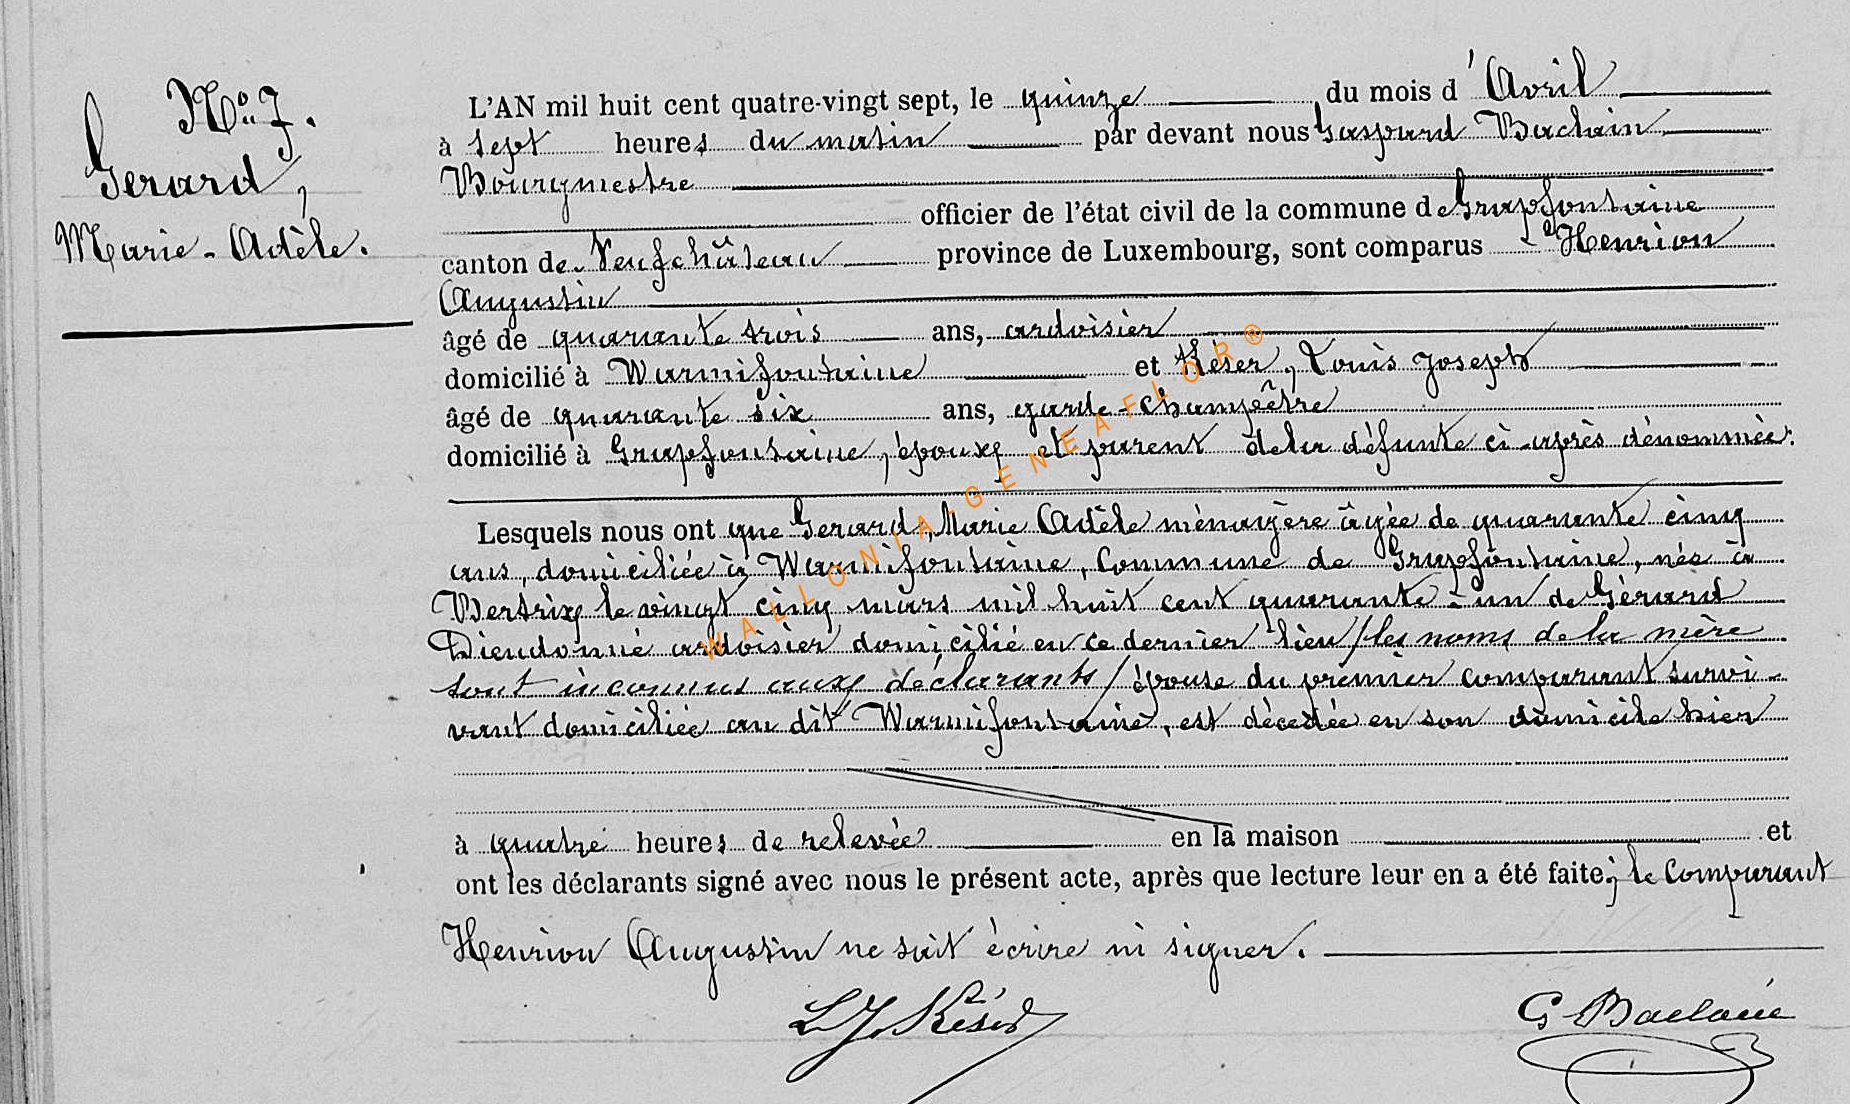 N° 7.
Gerard,
Marie-Adèle.
L'AN mil huit cent quatre-vingt sept, le quinze du mois d'Avril
à sept heures du matin par devant nous Gaspard Baclain,
Bourgmestre
officier de l'état civil de la commune de Grapfontaine
canton de Neufchâteau province de Luxembourg, sont comparus Henrion
Augustin
âgé de quarante trois ans, ardoisier
domicilié à Warmifontaine et Késer, Louis Joseph
âgé de quarante six ans, garde-champêtre
domicilié à Grapfontaine, époux et parent dela défunte ci-après dénommée:
Lesquels nous ont que Gerard, Marie Adèle ménagère âgée de quarante cinq
ans, domiciliée à Warmifontaine, Commune de Grapfontaine, née à
Bertrix le vingt cinq mars mil huit cent quarante-un de Gérard
Dieudonné ardoisier domicilié en ce dernier lieu /les noms de la mère
sont inconnus aux déclarants/ épouse du premier comparant survi-
vant domiciliée au dit Warmifontaine, est décedée en son domicile hier
à quatre heures de relevée en la maison et
ont les déclarants signé avec nous le présent acte, après que lecture leur en a été faite; le Comparant
Henrion Augustin ne sait écrire ni signer.
L J. Késer
G Baclain
WALLONIA-GENEAFLOR®